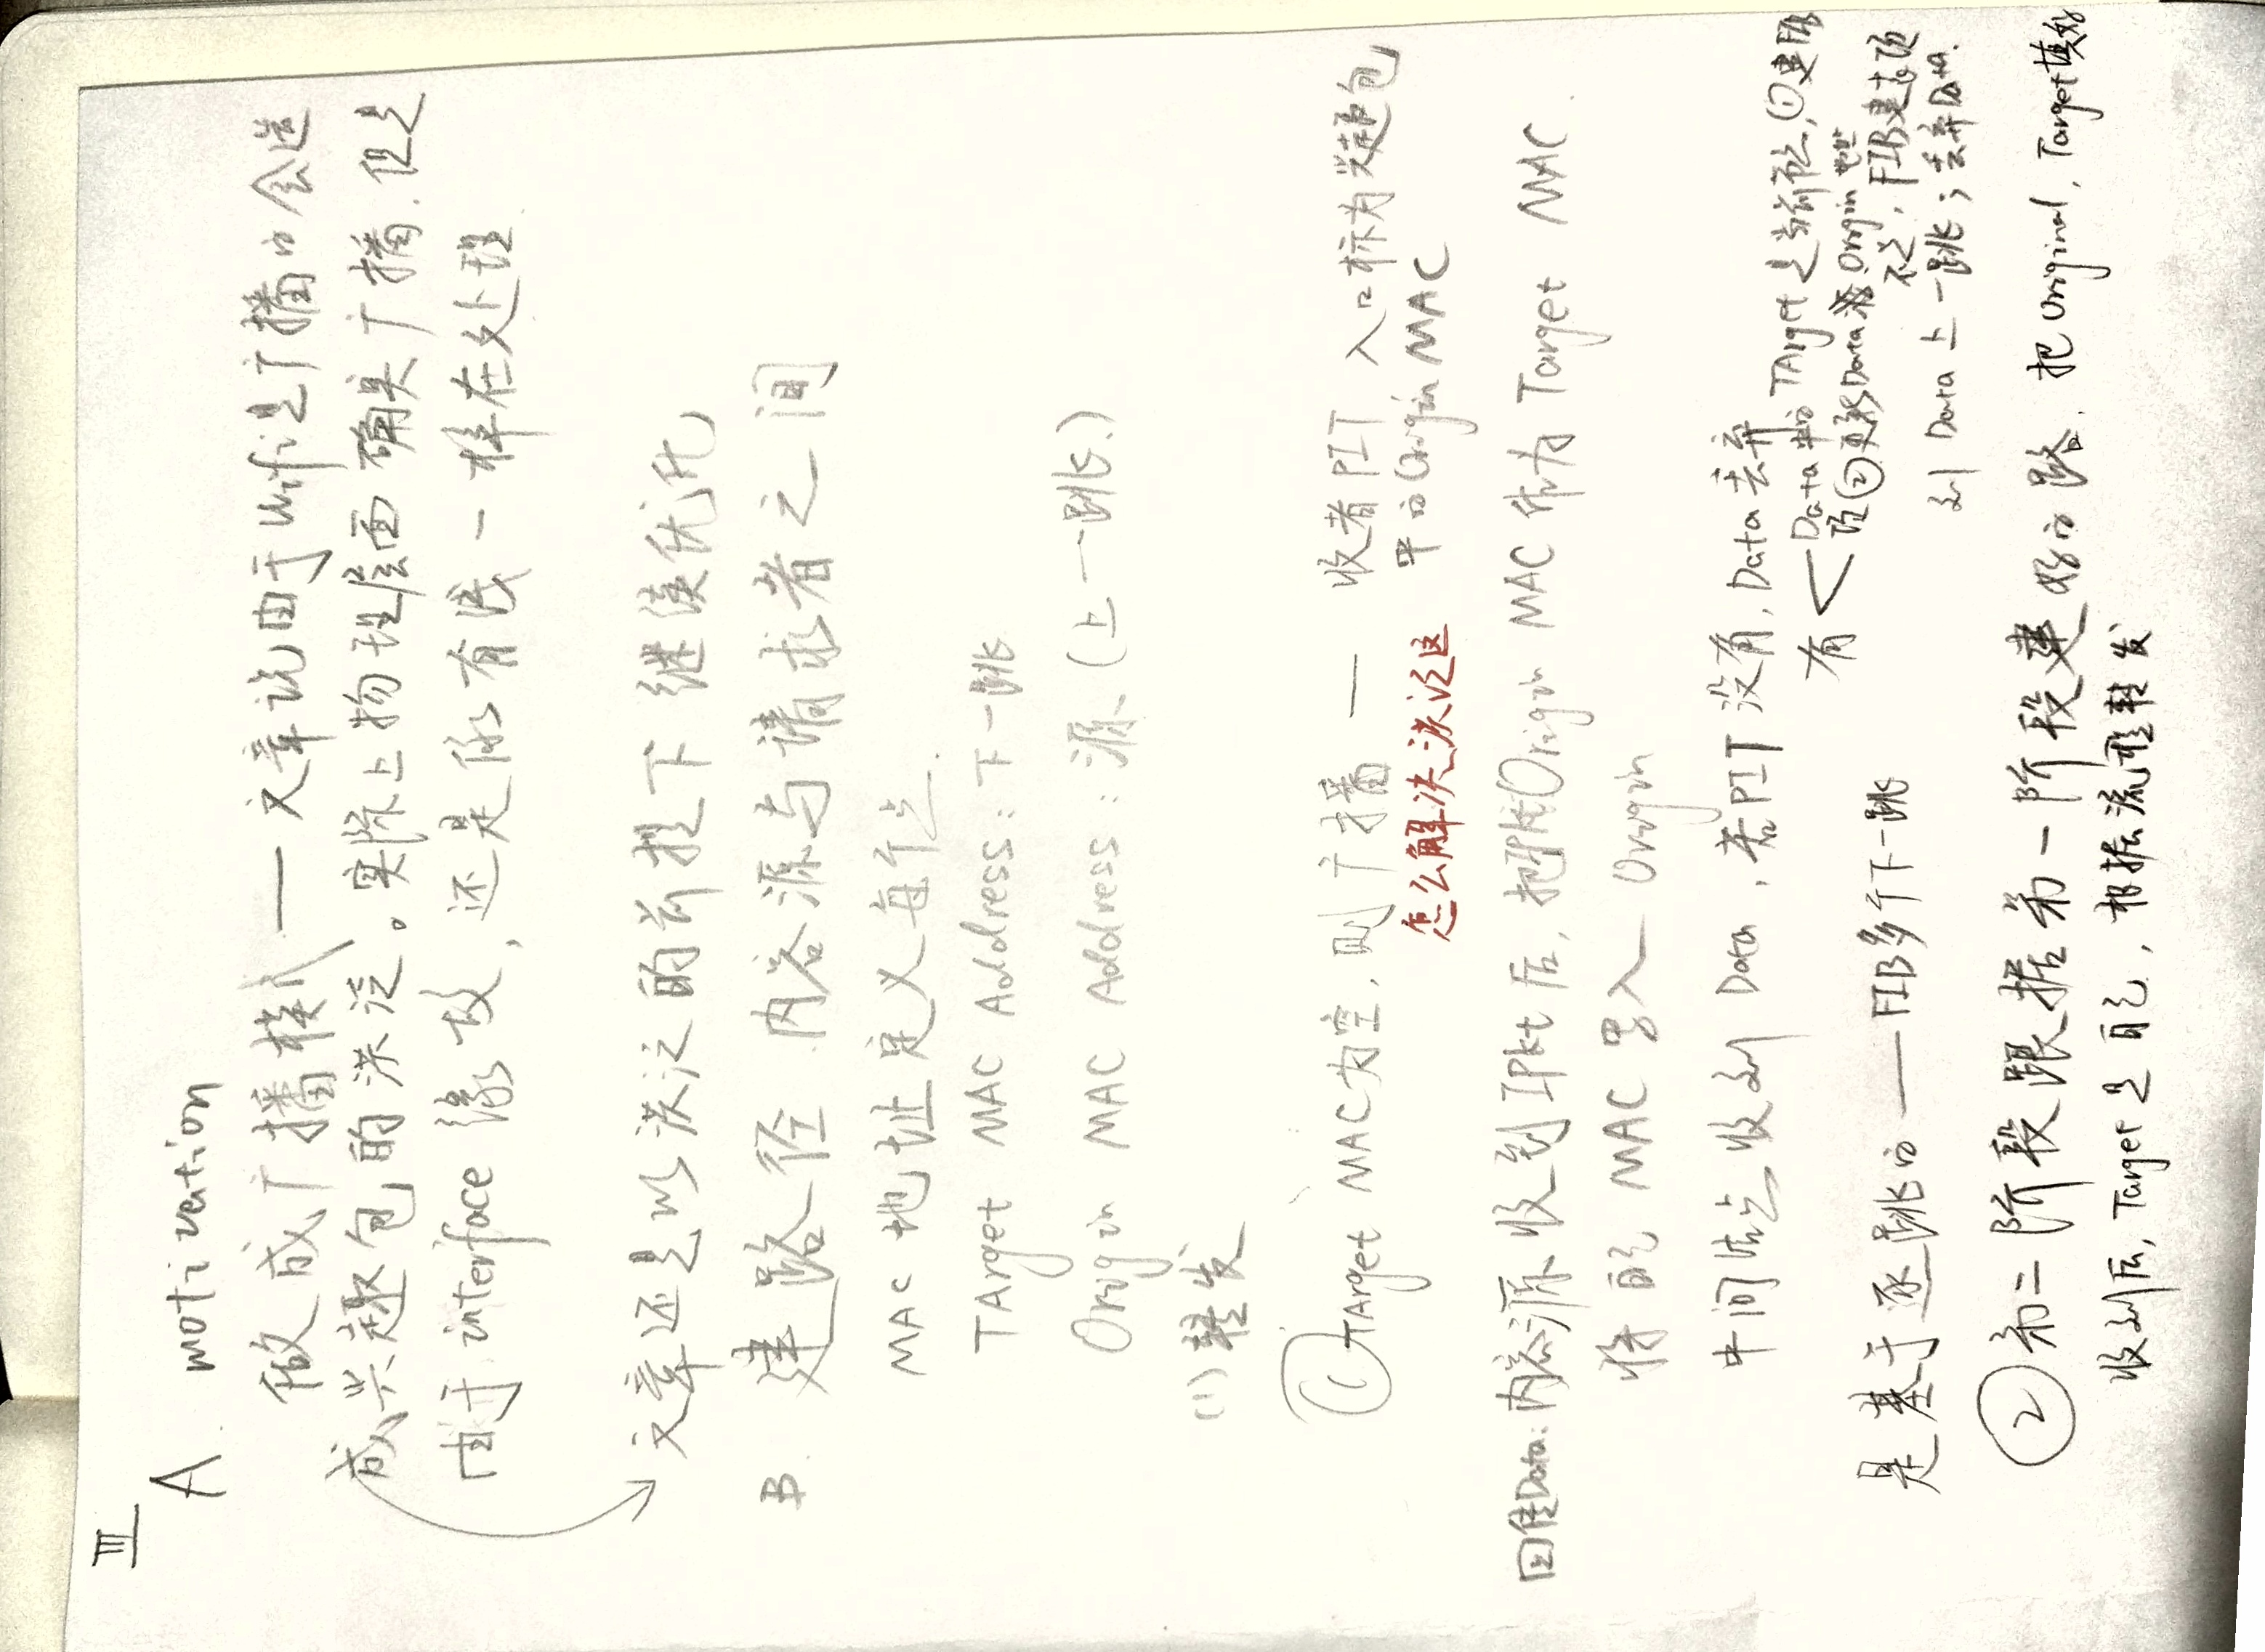 III
A. motivation
做成广播模式 —— 文章说由于wifi是广播的会造
成兴趣包的洪泛。实际上物理层面确实广播.但是
由于interface缘故,还是像有线一样在处理
文章还是以洪泛的前提下继续优化
B. 建路径 内容源与请求者之间
MAC 地址定义每个点.
TArget MAC Address: 下一跳
Origin MAC Address: 源、(上一跳.)
(1) 转发
① TArget MAC为空,则广播 —— 收者PIT 入口标为兴趣包
中的Origin MAC
怎么解决洪泛
回传Data:内容源收到IPkt后,把Pkt Origin MAC 作为 Target MAC
将自己 MAC 写入 Origin
中间节点收到 Data,若PIT 没有,Data丢弃
有 < Data中的TArget是当前节点,①建FIB
项②更新Data源Origin地址
不是,FIB建去项
到 Data 上一跳;丢弃Data.
是基于逐跳的 —— FIB多个下一跳
② 第二阶段跟据第一阶段建好的路,把Original, Target填好
收到后,Target是自己,根据流程转发